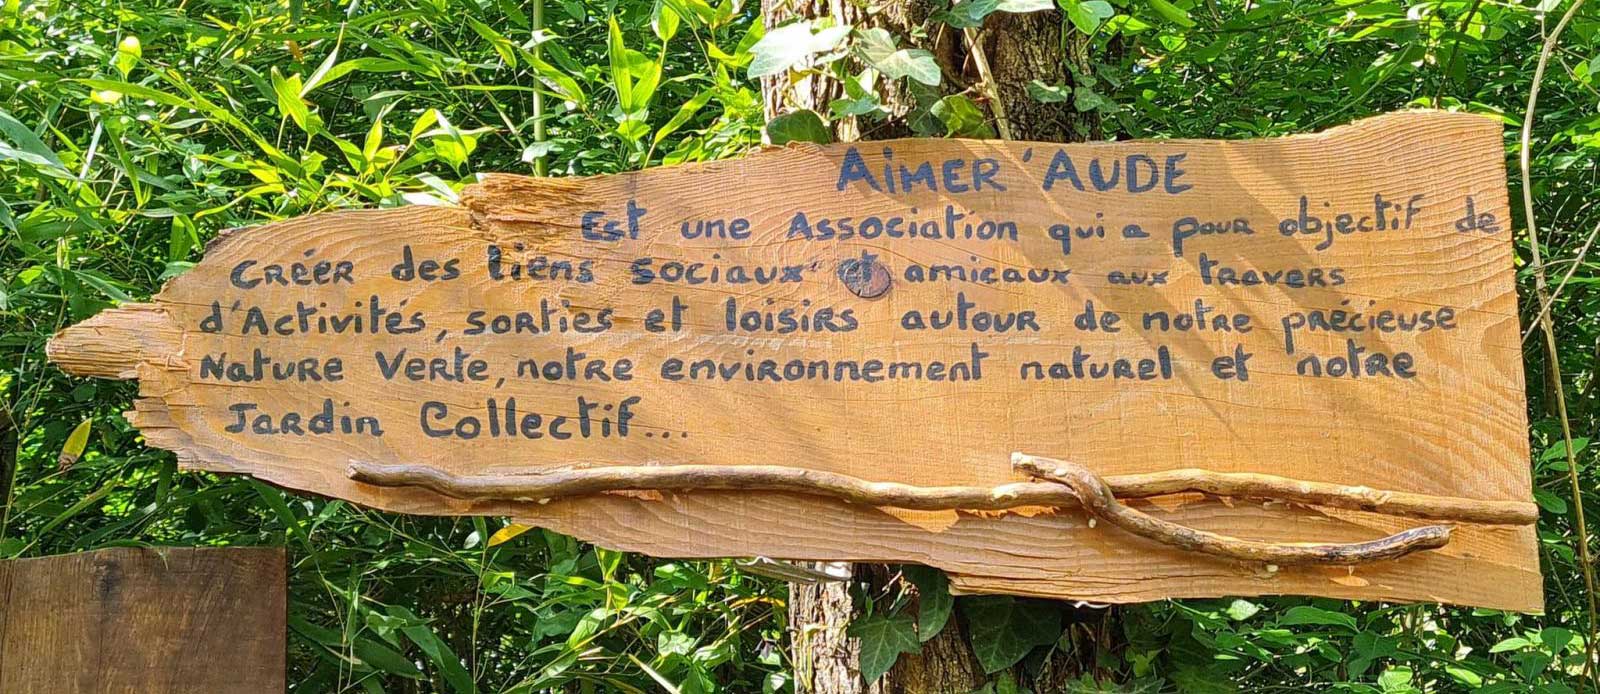 AiMER 'AUDE
Est une Association qui a pour objectif de
CRÉER des liens sociaux et amicaux aux travers
d'Activités, sorties et loisirs autour de notre précieuse
Nature Verte, notre environnement naturel et notre
Jardin Collectif...